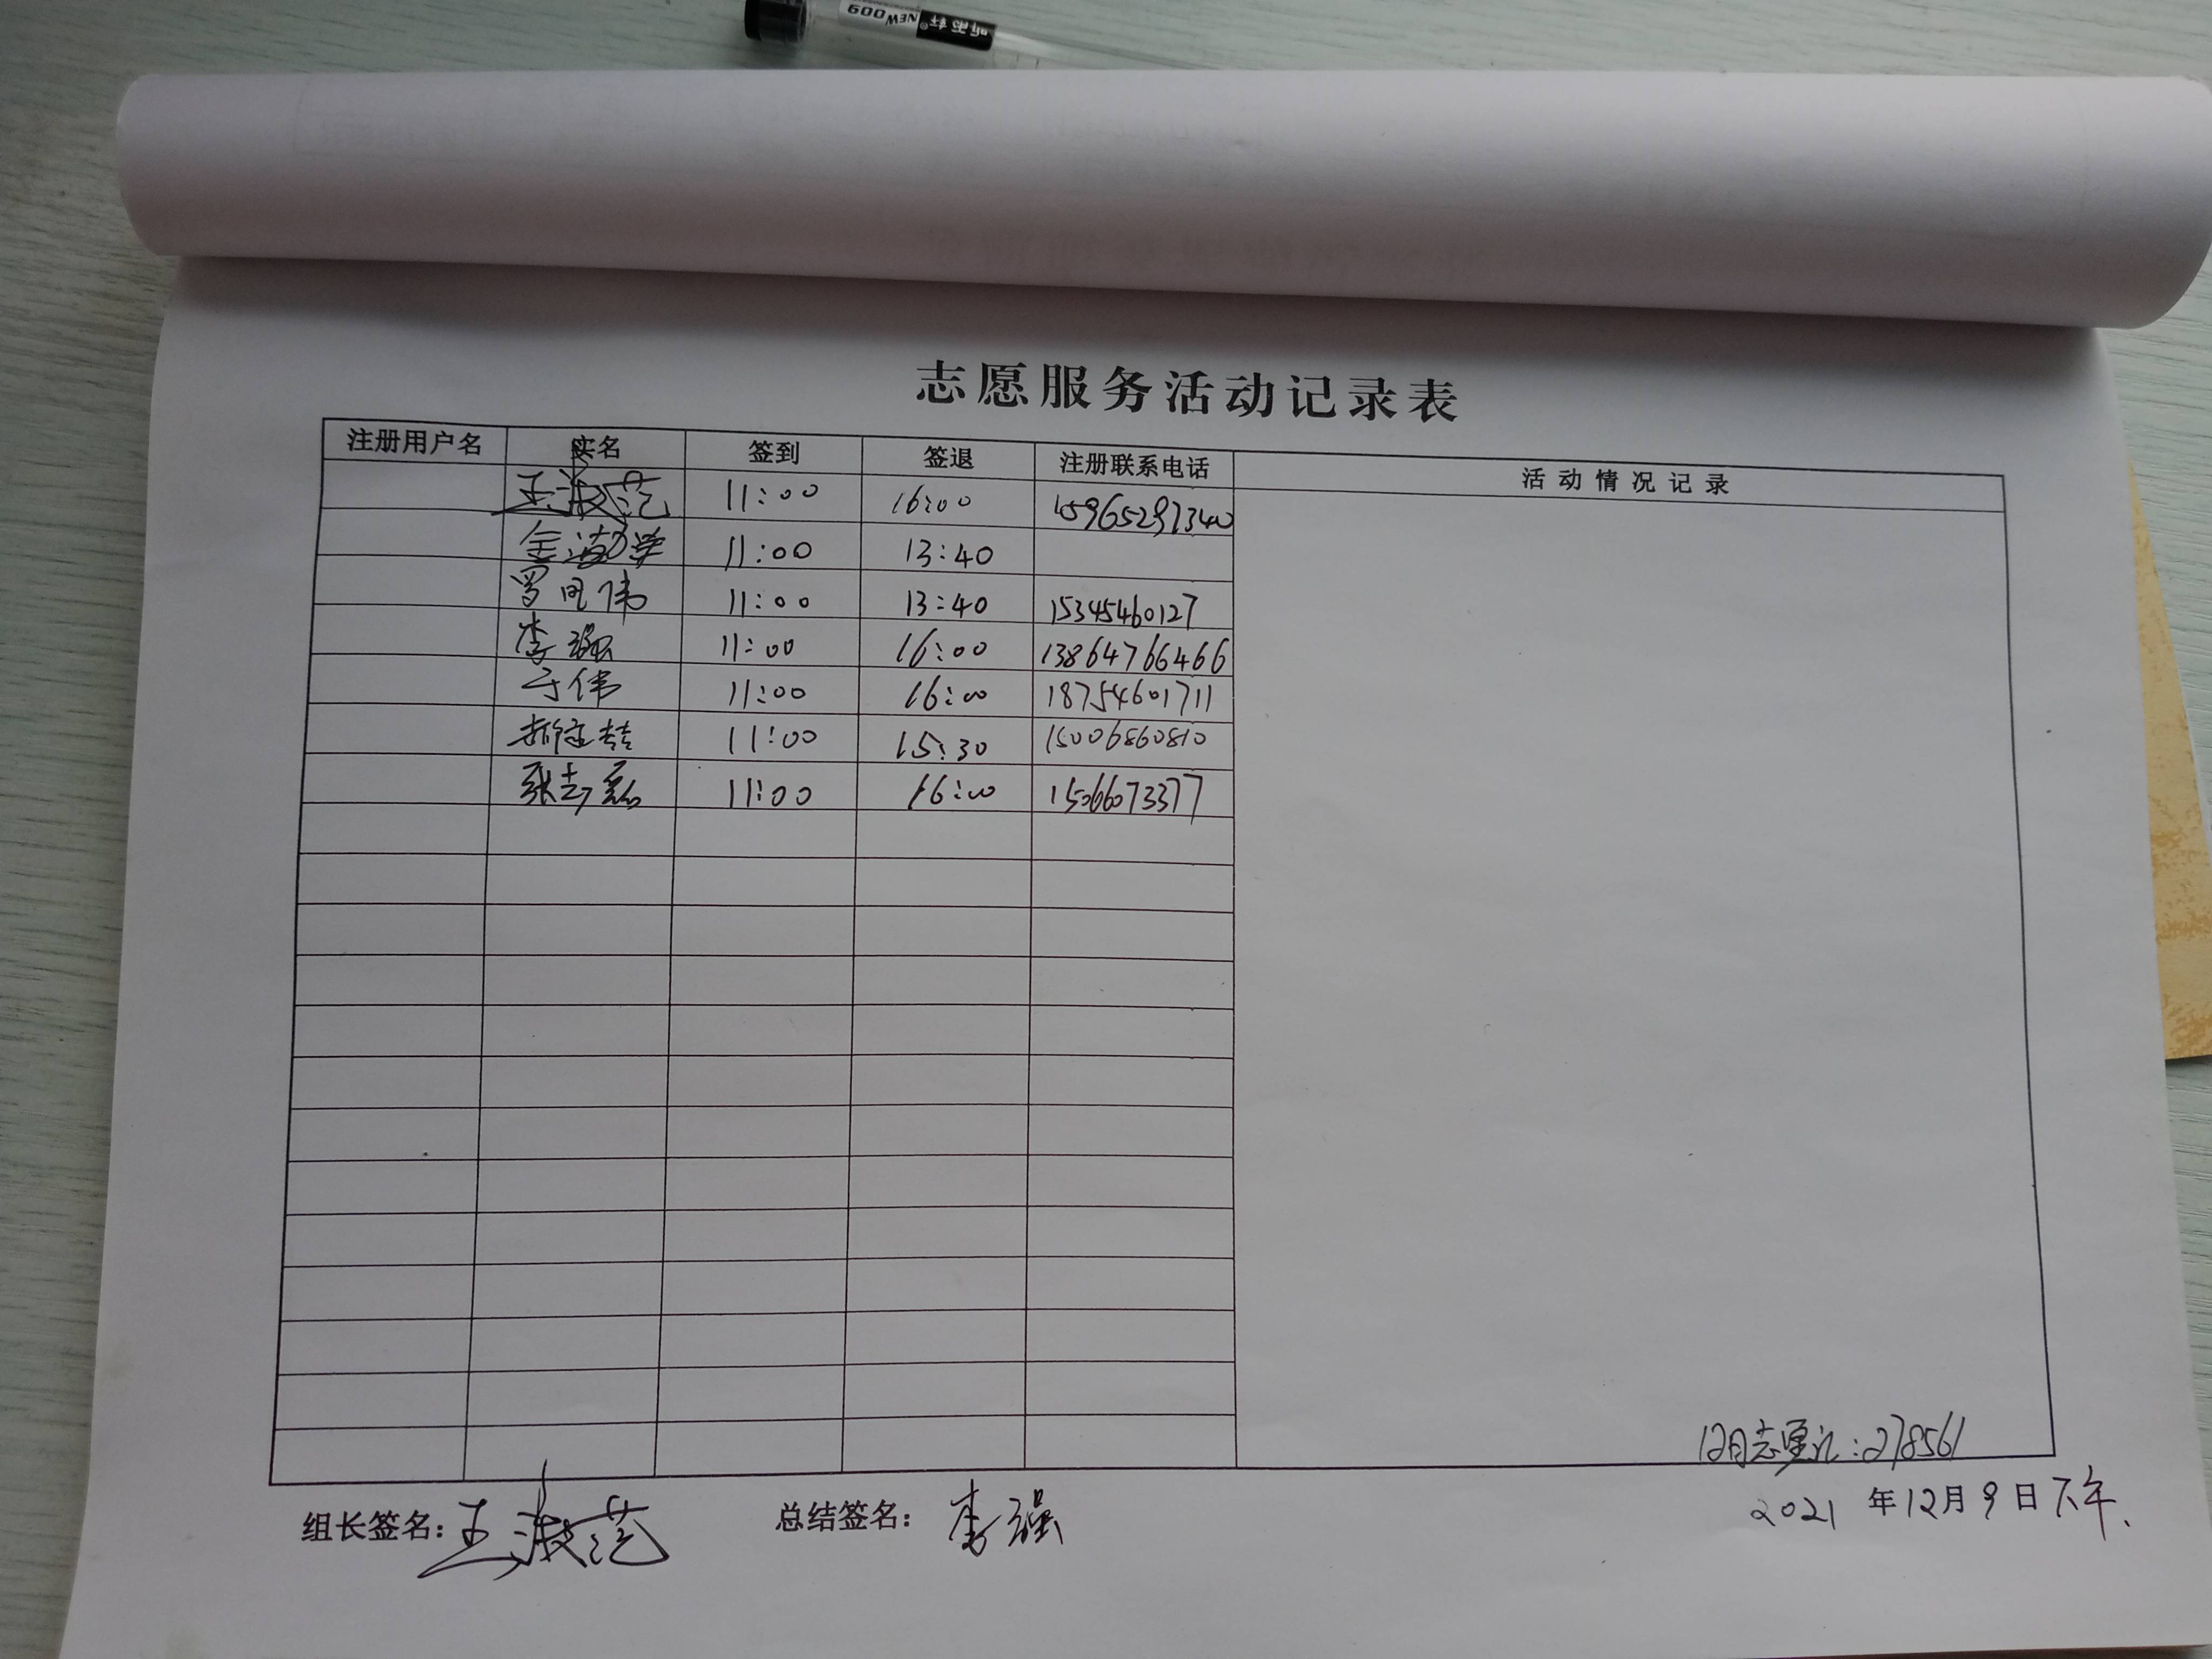 NEW 009
志愿服务活动记录表
注册用户名 实名 签到 签退 注册联系电话 活动情况记录
王淑范 11:00 16:00 15965297340
11:00 13:40
11:00 13:40 15345460127
李强 11:00 16:00 13864766466
于伟 11:00 16:00 18754601711
11:00 15:30 15006860810
张志磊 11:00 16:00 15066073377
12月志愿汇:278561
组长签名: 王淑范 总结签名: 李强 2021年12月9日下午